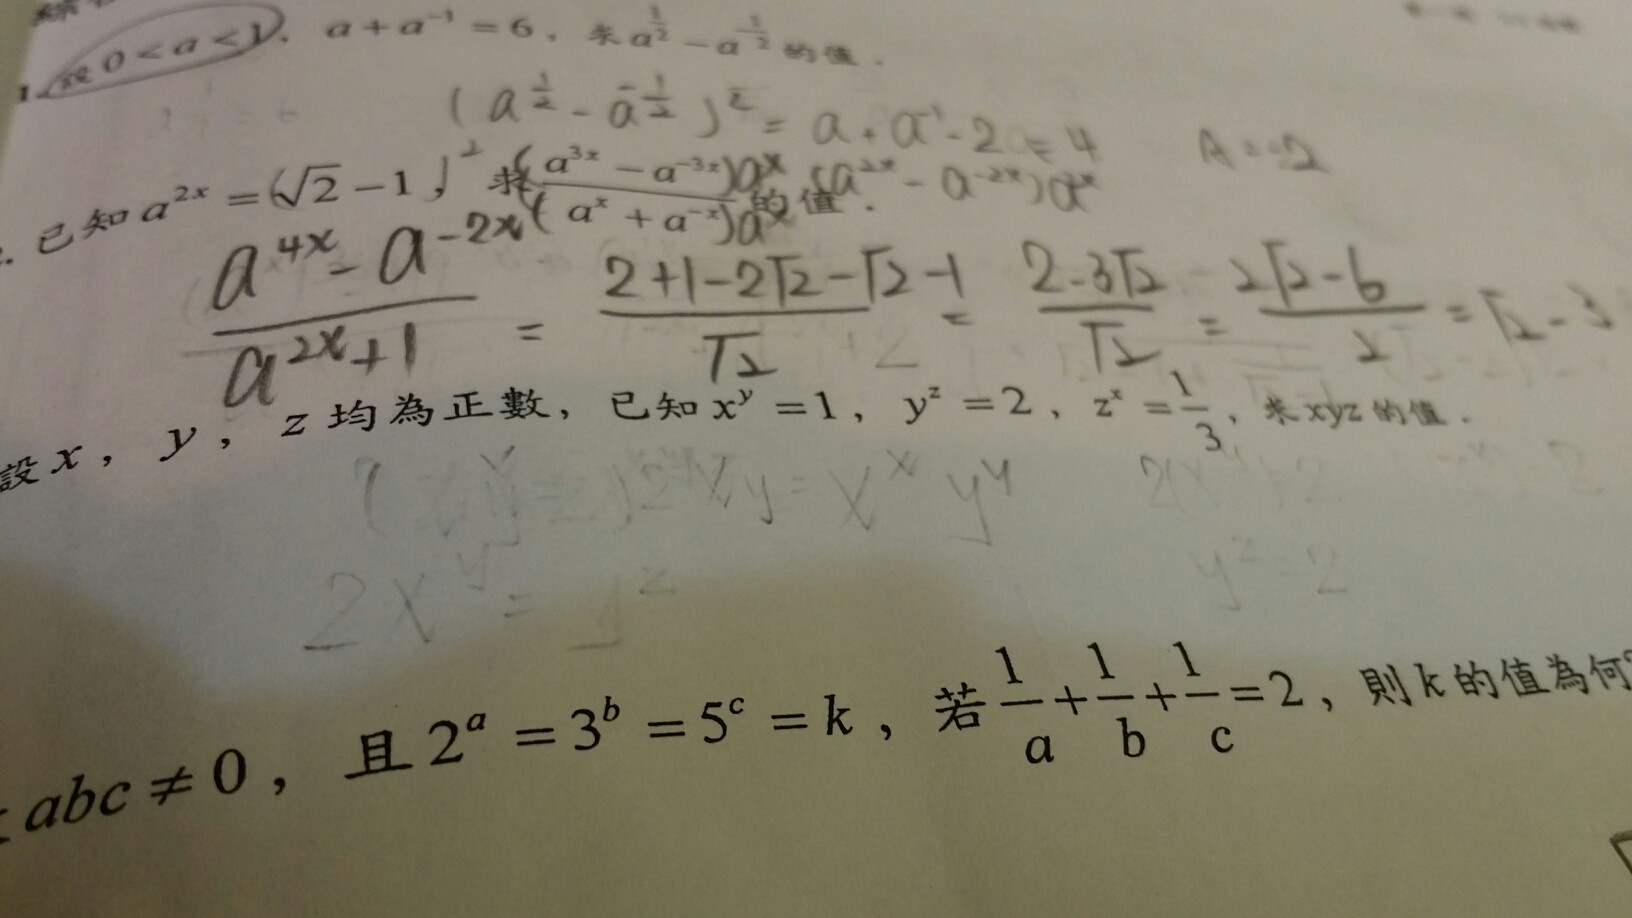 1. 設 0 < a < 1, a + a⁻¹ = 6, 求 a^{1/2} − a^{-1/2} 的值.
(a^{1/2} - a^{-1/2})² = a + a⁻¹ - 2 = 4 A = -2
. 已知 a^{2x} = (√2 − 1)², 求 (a^{3x} − a^{−3x})a^x / (a^x + a^{−x})a^x 的值. (a^{2x} - a^{-2x})a^{2x}
a^{4x} - a^{-2x} / a^{2x}+1 = 2+1-2√2-√2-1 / √2 = 2-3√2 / √2 = 2√2-6 / 2 = √2-3
設 x, y, z 均為正數, 已知 x^y = 1, y^z = 2, z^x = 1/3, 求 xyz 的值.
xy = x^x y^y
2x^y = y^z y^z = 2
abc ≠ 0, 且 2^a = 3^b = 5^c = k, 若 1/a + 1/b + 1/c = 2, 則 k 的值為何